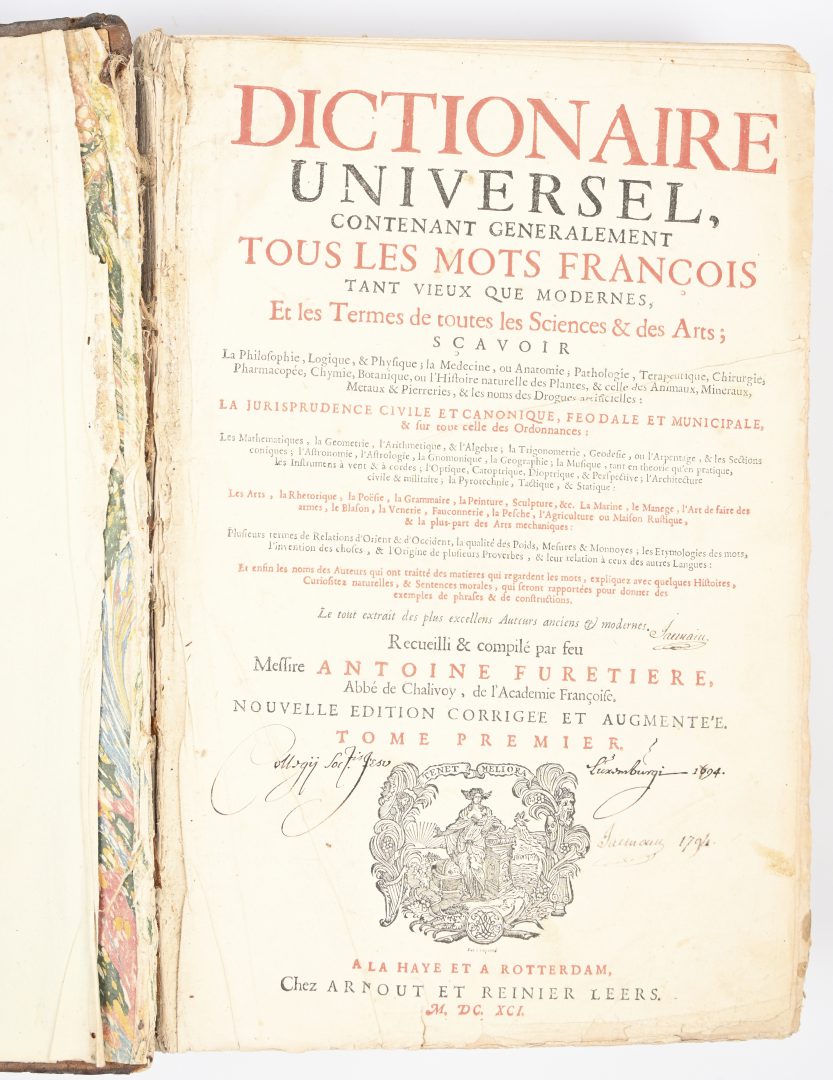 DICTIONAIRE
UNIVERSEL,
CONTENANT GENERALEMENT
TOUS LES MOTS FRANÇOIS
TANT VIEUX QUE MODERNES,
Et les Termes de toutes les Sciences & des Arts;
SÇAVOIR
La Philosophie, Logique, & Physique; la Medecine, ou Anatomie; Pathologie, Terapeutique, Chirurgie,
Pharmacopée, Chymie, Botanique, ou l'Histoire naturelle des Plantes, & celle des Animaux, Mineraux,
Metaux & Pierreries, & les noms des Drogues artificielles:
LA JURISPRUDENCE CIVILE ET CANONIQUE, FEODALE ET MUNICIPALE,
& sur tout celle des Ordonnances:
Les Mathematiques, la Geometrie, l'Arithmetique, & l'Algebre; la Trigonometrie, Geodesie, ou l'Arpentage, & les Sections
coniques; l'Astronomie, l'Astrologie, la Gnomonique, la Geographie; la Musique, tant en theorie qu'en pratique,
les Instrumens à vent & à cordes; l'Optique, Catoptrique, Dioptrique, & Perspective; l'Architecture
civile & militaire; la Pyrotechnie, Tactique, & Statique:
Les Arts, la Rhetorique, la Poësie, la Grammaire, la Peinture, Sculpture, &c. La Marine, le Manege, l'Art de faire des
armes, le Blason, la Venerie, Fauconnerie, la Pesche, l'Agriculture ou Maison Rustique,
& la plus-part des Arts mechaniques:
Plusieurs termes de Relations d'Orient & d'Occident, la qualité des Poids, Mesures & Monnoyes; les Etymologies des mots,
l'invention des choses, & l'Origine de plusieurs Proverbes, & leur relation à ceux des autres Langues:
Et enfin les noms des Auteurs qui ont traitté des matieres qui regardent les mots, expliquez avec quelques Histoires,
Curiositez naturelles, & Sentences morales, qui seront rapportées pour donner des
exemples de phrases & de constructions.
Le tout extrait des plus excellens Auteurs anciens & modernes.
Recueilli & compilé par feu
Messire ANTOINE FURETIERE,
Abbé de Chalivoy, de l'Academie Françoise.
NOUVELLE EDITION CORRIGEE ET AUGMENTE'E.
TOME PREMIER.
Collegij Soc.tis Jesu Luxemburgi 1694.
TENET MELIORA
1794.
A LA HAYE ET A ROTTERDAM,
Chez ARNOUT ET REINIER LEERS.
M. DC. XCI.